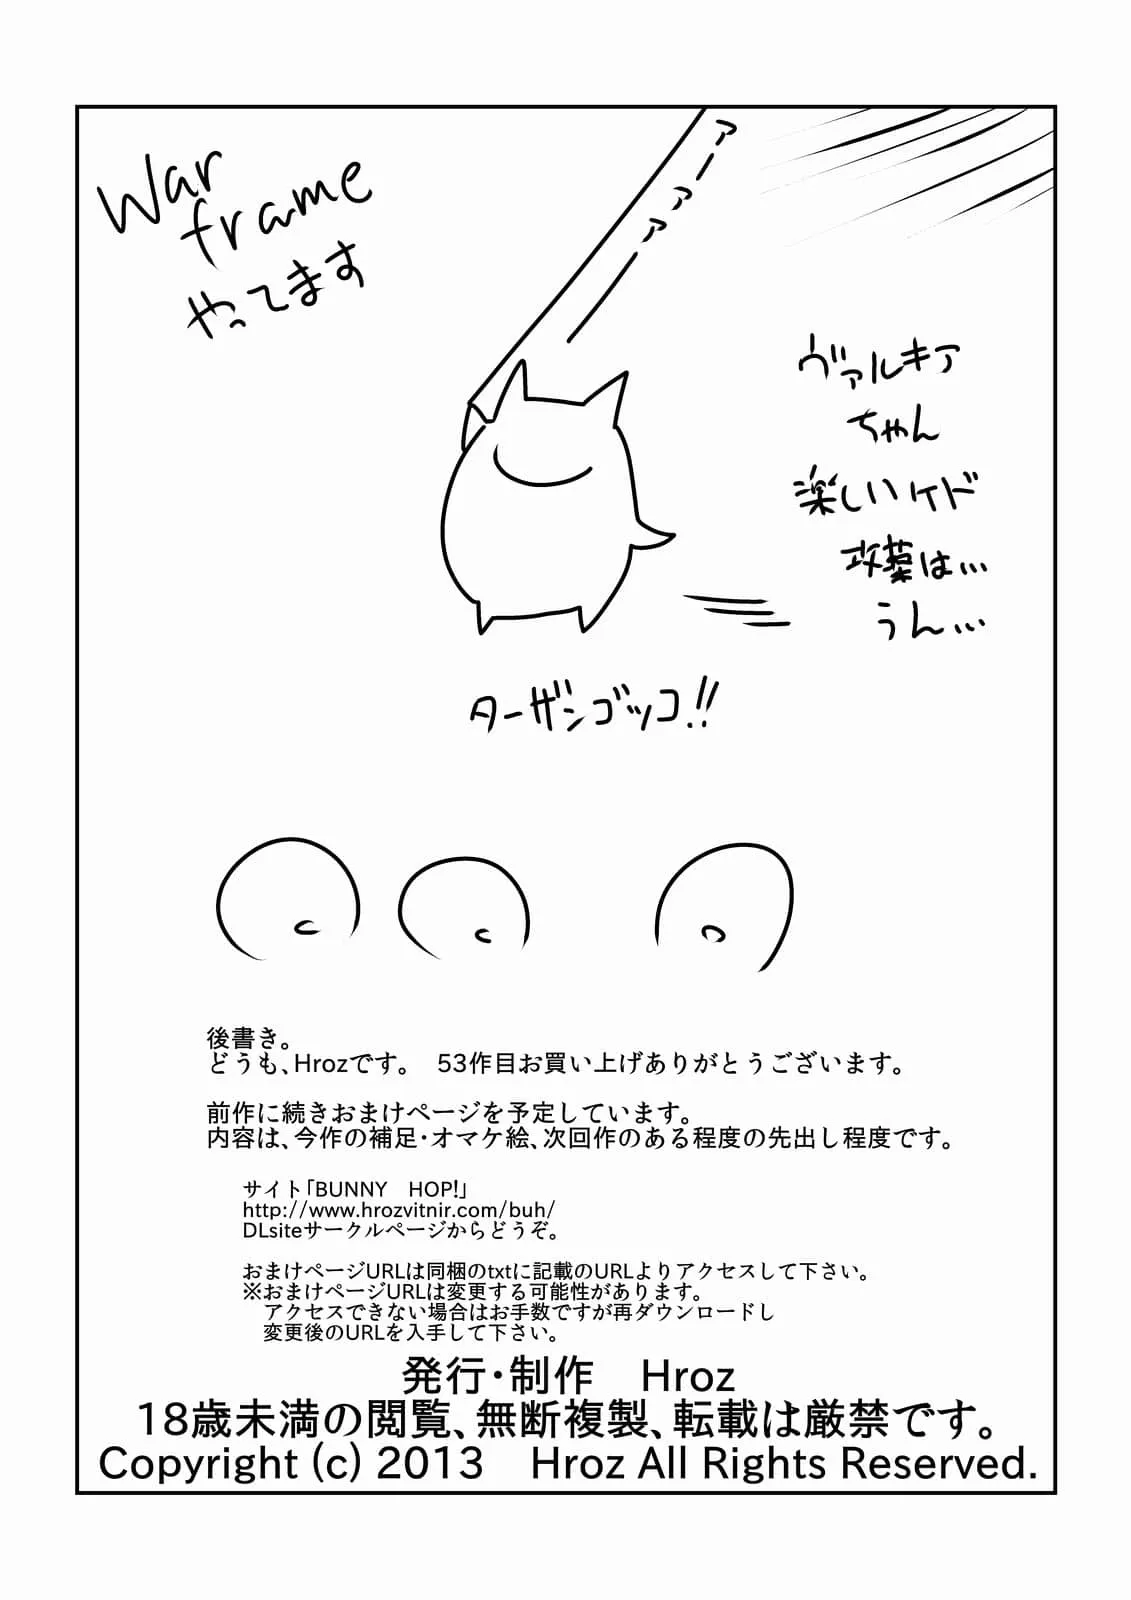 War
frame
やってます
アーァァー
ヴァルキア
ちゃん
楽しいケド
攻薬は…
うん…
ターザンゴッコ!!
後書き。
どうも、Hrozです。　53作目お買い上げありがとうございます。
前作に続きおまけページを予定しています。
内容は、今作の補足・オマケ絵、次回作のある程度の先出し程度です。
サイト「BUNNY　HOP!」
http://www.hrozvitnir.com/buh/
DLsiteサークルページからどうぞ。
おまけページURLは同梱のtxtに記載のURLよりアクセスして下さい。
※おまけページURLは変更する可能性があります。
アクセスできない場合はお手数ですが再ダウンロードし
変更後のURLを入手して下さい。
発行・制作　Hroz
18歳未満の閲覧、無断複製、転載は厳禁です。
Copyright (c) 2013　Hroz All Rights Reserved.